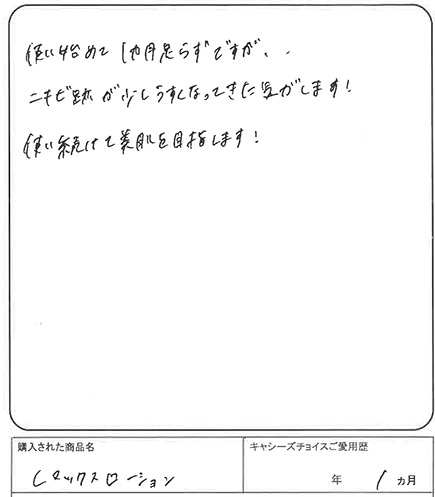 使い始めて1カ月足らずですが、、
ニキビ跡が少しうすくなってきた気がします!
使い続けて美肌を目指します!
購入された商品名
キャシーズチョイスご愛用歴
Cマックスローション
年 1 カ月